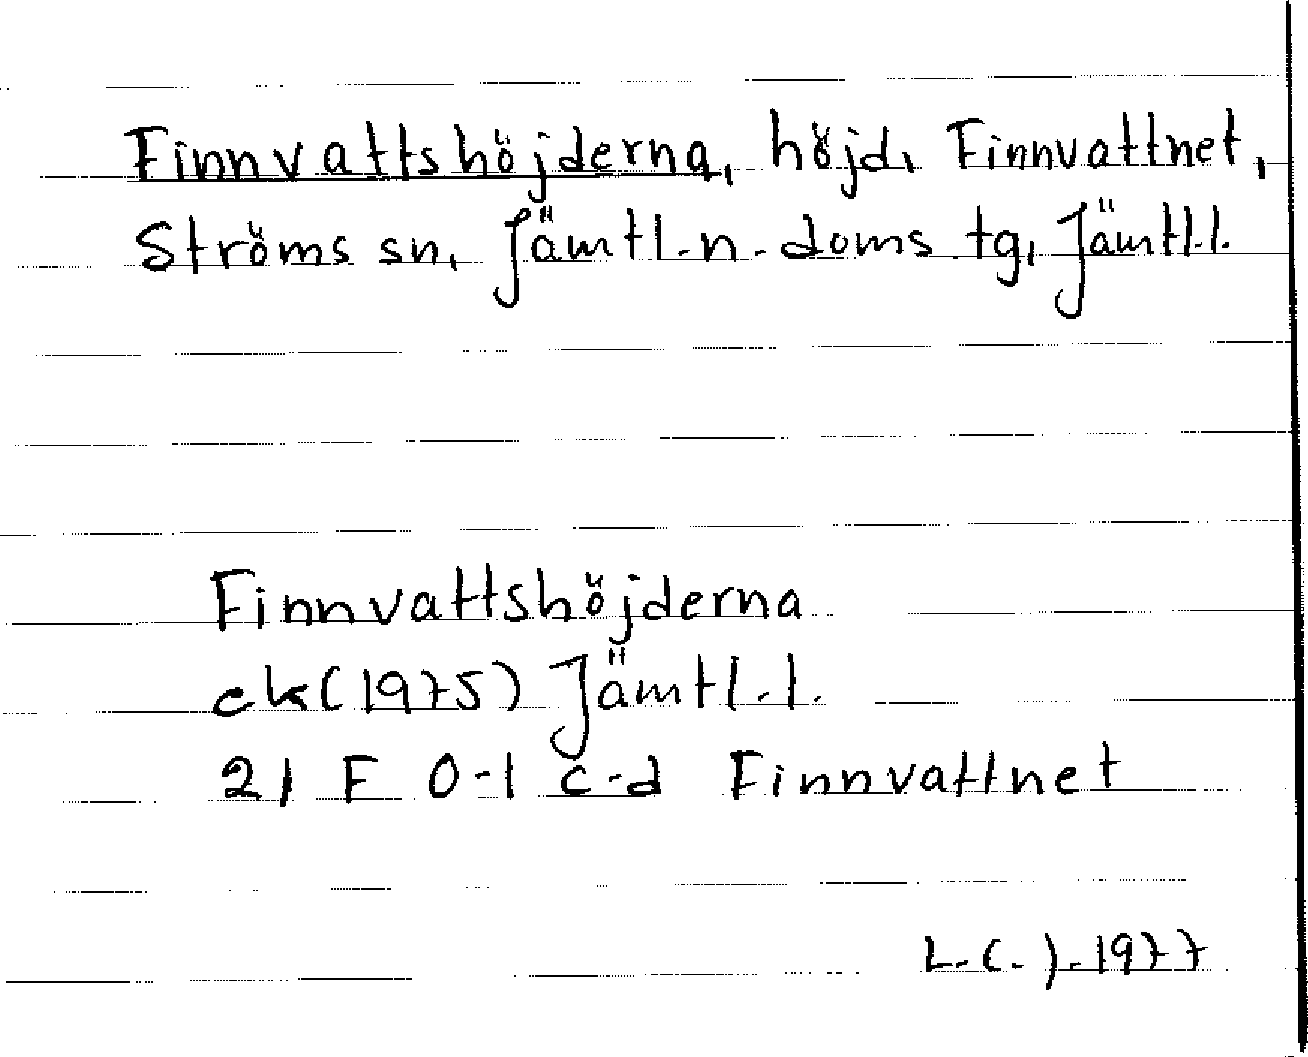 Finnvattshöjderna, höjd, Finnvattnet,
Ströms sn, Jämtl.n.doms tg, Jämtl.l.
Finnvattshöjderna
ek(1975) Jämtl.l.
21 F 0-1 c-d Finnvattnet
L.C.J.1977